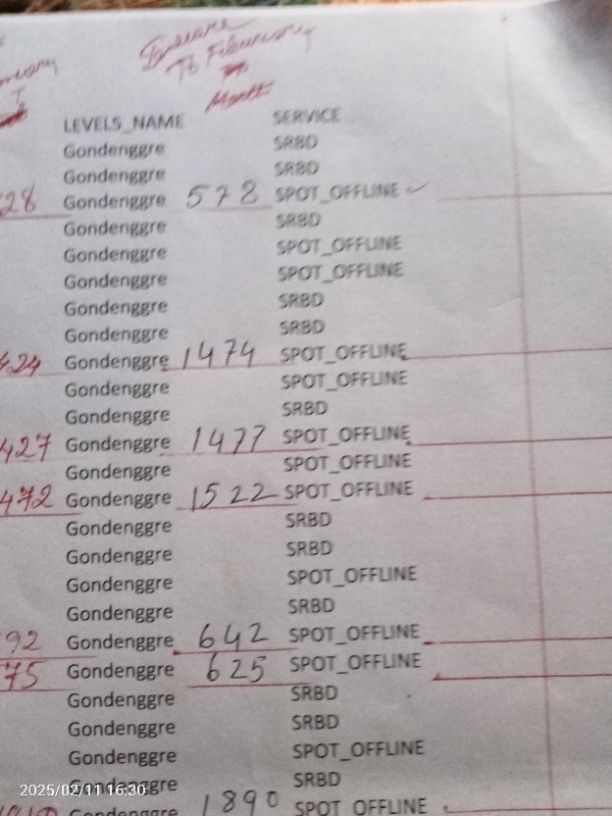 To
Month
LEVELS_NAME SERVICE
Gondenggre SRBD
Gondenggre SRBD
28 Gondenggre 578 SPOT_OFFLINE
Gondenggre SRBD
Gondenggre SPOT_OFFLINE
Gondenggre SPOT_OFFLINE
Gondenggre SRBD
Gondenggre SRBD
424 Gondenggre 1474 SPOT_OFFLINE
Gondenggre SPOT_OFFLINE
Gondenggre SRBD
427 Gondenggre 1477 SPOT_OFFLINE
Gondenggre SPOT_OFFLINE
472 Gondenggre 1522 SPOT_OFFLINE
Gondenggre SRBD
Gondenggre SRBD
Gondenggre SPOT_OFFLINE
Gondenggre SRBD
92 Gondenggre 642 SPOT_OFFLINE
75 Gondenggre 625 SPOT_OFFLINE
Gondenggre SRBD
Gondenggre SRBD
Gondenggre SPOT_OFFLINE
Gondenggre SRBD
2025/02/11 16:30
Gondenggre 1890 SPOT_OFFLINE